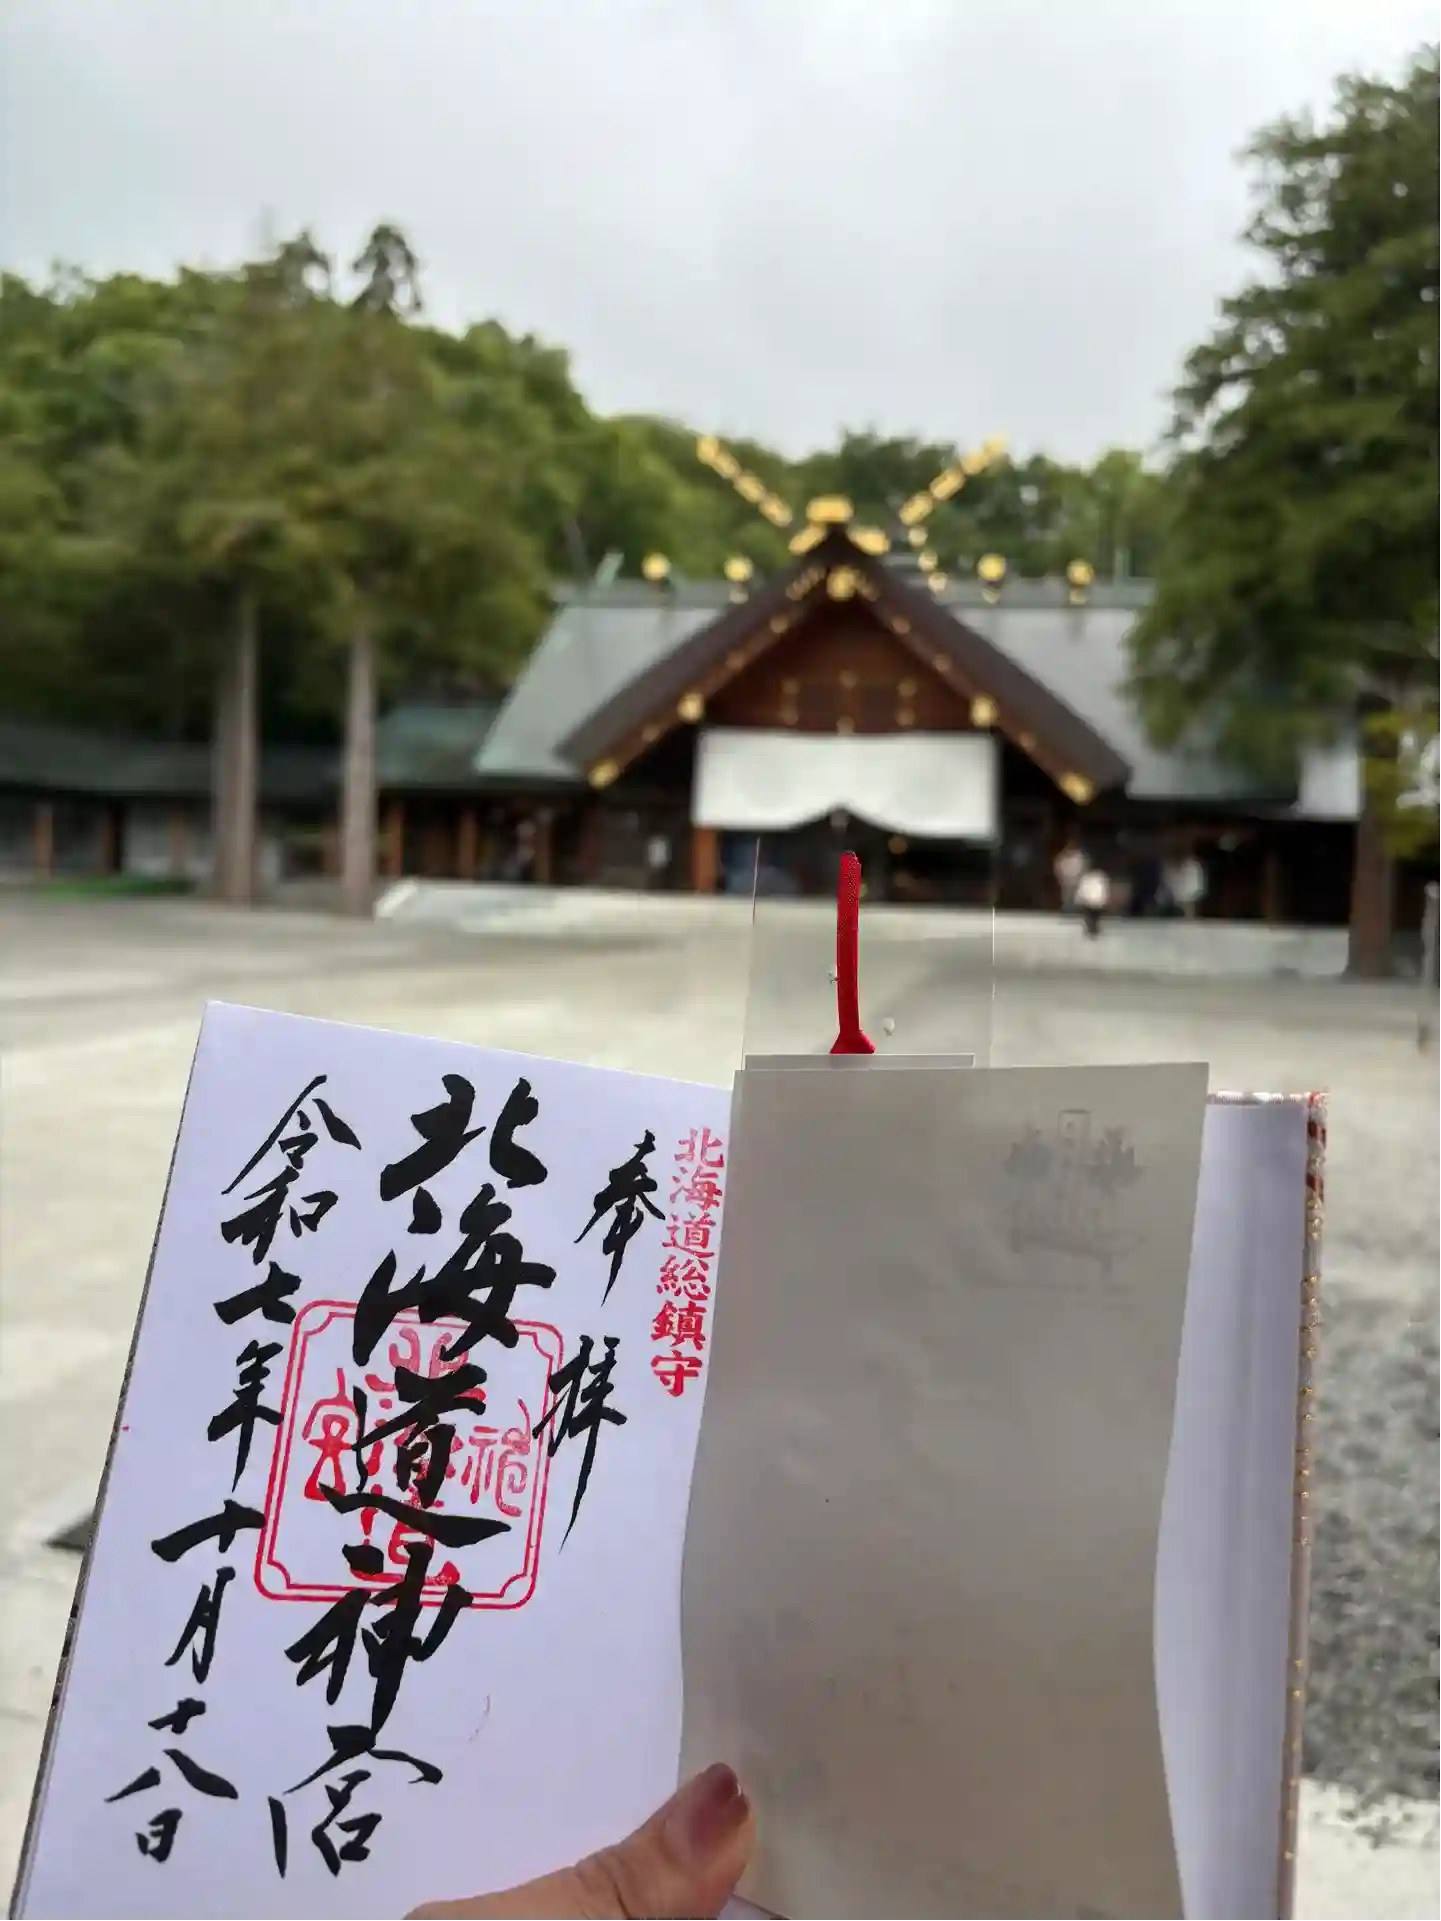 北海道総鎮守
奉拝
北海道神宮
令和七年十月十八日